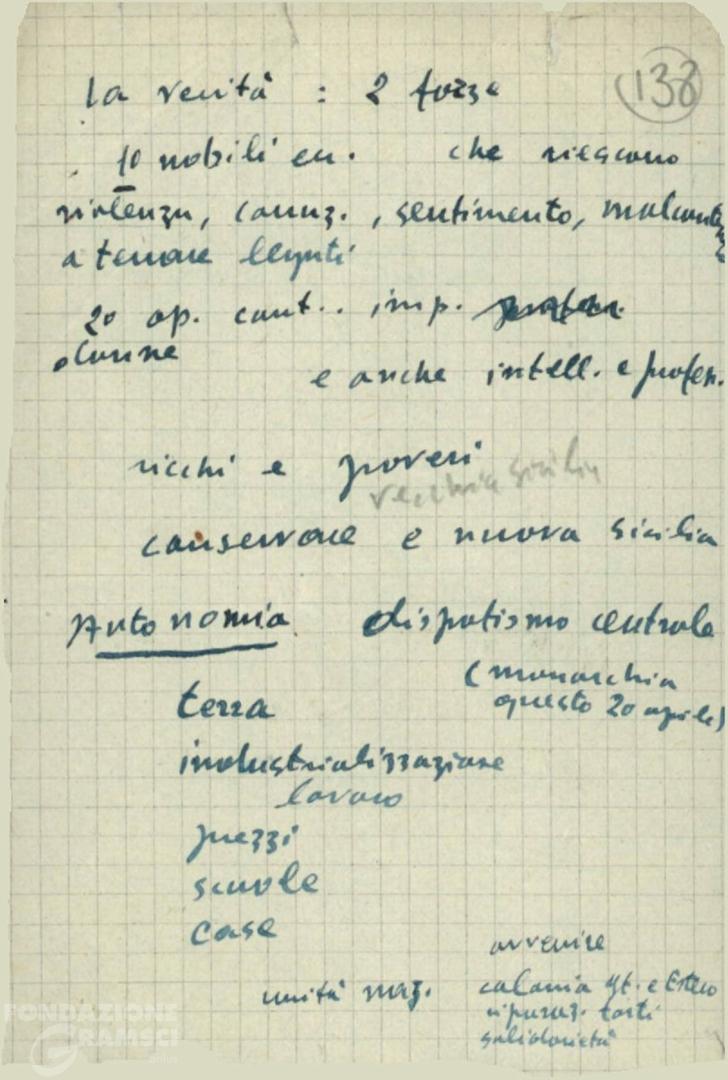 138
la verità : 2 forze
1º nobili en. che riescono
violenza, corruz., sentimento, malcont
a tenere legati
2º op. cont.. imp.
donne
e anche intell. e profess.
ricchi e poveri
vecchia sicilia
conservare e nuova sicilia
Autonomia dispotismo centrale
(monarchia
questo 20 aprile)
terra
industrializzazione
lavoro
prezzi
scuole
case
avvenire
unità naz. colonia gt. e Estero
riparaz. torti
solidarietà
FONDAZIONE
GRAMSCI